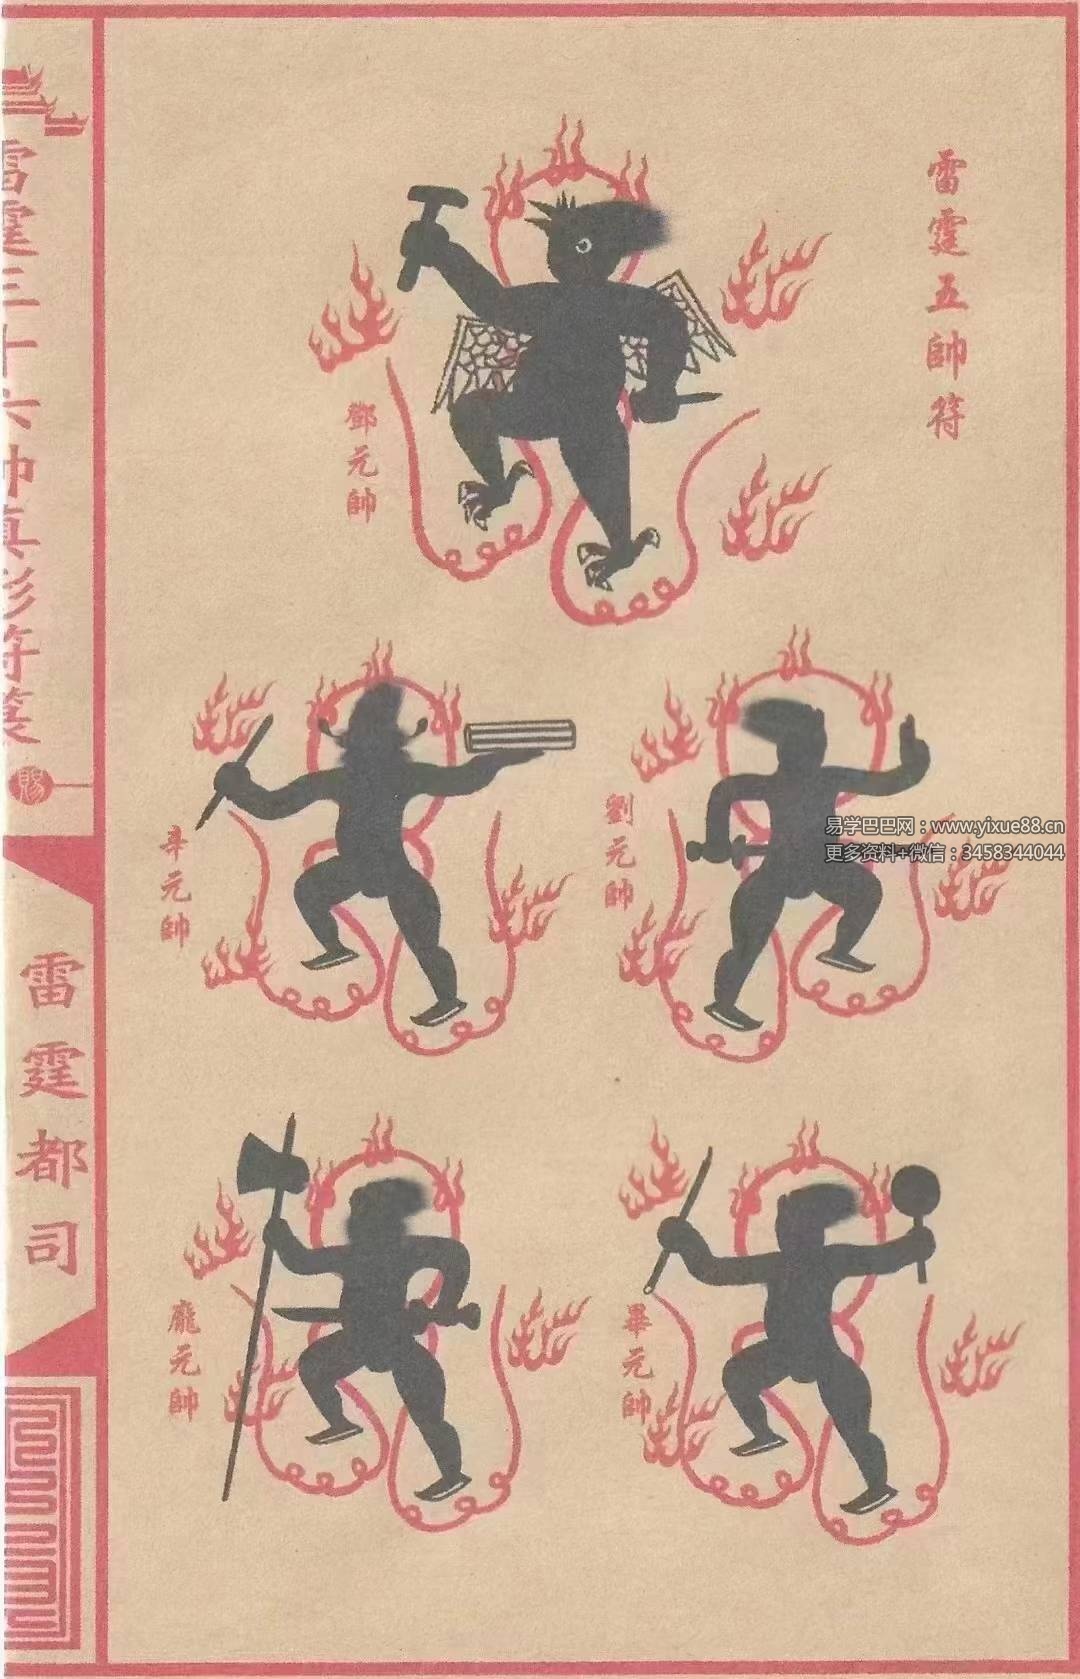 雷霆五帥符
鄧元帥
辛元帥
劉元帥
龐元帥
畢元帥
雷霆三十六帥真形符篆
賜
雷霆都司
易学巴巴网：www.yixue88.cn
更多资料+微信：3458344044